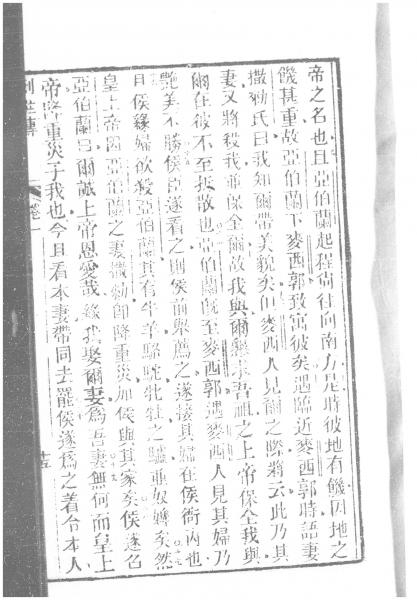 帝之名也且亞伯蘭起程尙往向南方是時彼地有饑因地之
饑甚重故亞伯蘭下麥西郭致寓彼矣遇臨近麥西郭時語妻
撒勑氏曰我知爾帶美貌矣但麥西人見爾之際將云此乃其
妻又將殺我並保全爾故我與爾吾祖之上帝保全我與
爾在彼不至拔散也亞伯蘭旣至麥西郭遇麥西人見其婦乃
艷美不勝侯臣遂看之則侯前舉薦之遂接其婦在侯衙內也
且侯緣婦欲殺亞伯蘭其有牛羊駱駝牝牡之驢並奴婢矣然
皇上帝因亞伯蘭之妻撒勑卽降重災加侯與其家矣侯遂召
亞伯蘭曰爾誠上帝恩愛哉緣我娶爾妻爲吾妻無何而皇上
帝降重災于我也今且看本妻帶同去罷侯遂爲之着令本人
創世傳 卷一